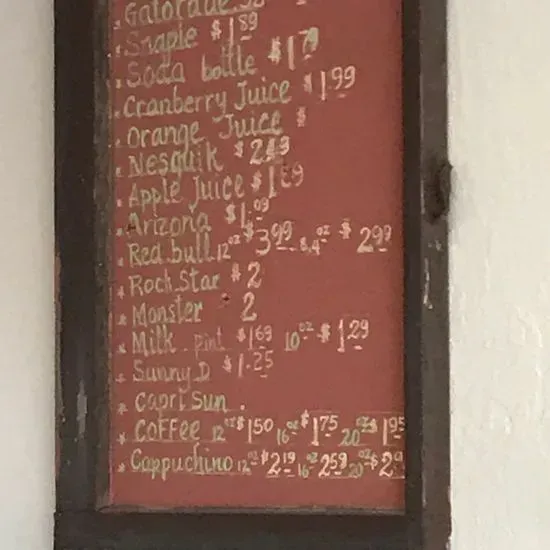 Gatorade
* Snaple $1.89
* Soda bottle $1.79
* Cranberry Juice $1.99
* Orange Juice $
* Nesquik $2.49
* Apple Juice $1.89
* Arizona $1.09
* Red bull 12oz $3.99 - 8.4oz $2.99
* Rock Star $2
* Monster 2
* Milk - pint $1.69 10oz $1.29
* Sunny D $1.25
* Capri Sun .
* COFFEE 12oz $1.50 16oz $1.75 20oz $1.95
* Cappuchino 12oz $2.19 16oz 2.59 20oz $2.9